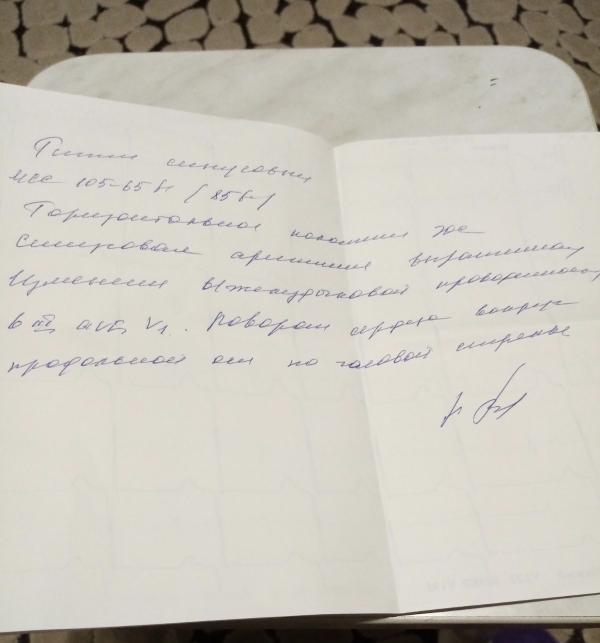 Ритм синусовый
ЧСС 105-65 в1 (85 в1)
Горизонтальное положение эос
Синусовая аритмия выраженная
Изменения в/желудочковой проводимости
в III, aVF, V1. Поворот сердца вокруг
продольной оси по часовой стрелке